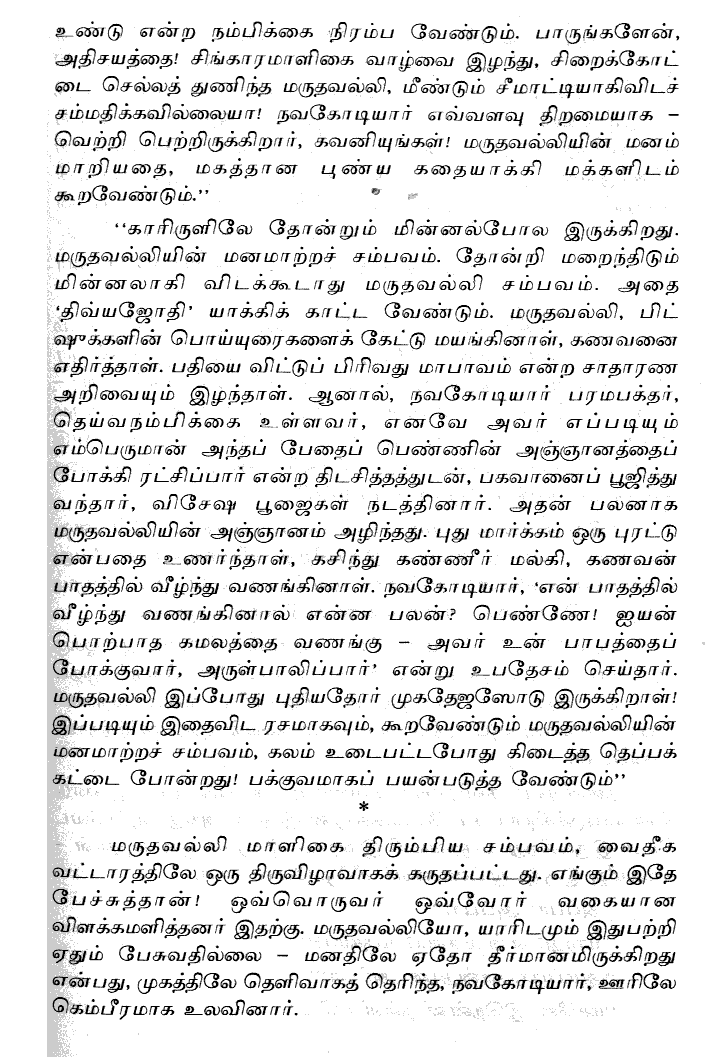 உண்டு என்ற நம்பிக்கை நிரம்ப வேண்டும். பாருங்களேன்,
அதிசயத்தை! சிங்காரமாளிகை வாழ்வை இழந்து, சிறைக்கோட்
டை செல்லத் துணிந்த மருதவல்லி, மீண்டும் சீமாட்டியாகிவிடச்
சம்மதிக்கவில்லையா! நவகோடியார் எவ்வளவு திறமையாக –
வெற்றி பெற்றிருக்கிறார், கவனியுங்கள்! மருதவல்லியின் மனம்
மாறியதை, மகத்தான புண்ய கதையாக்கி மக்களிடம்
கூறவேண்டும்.''
''காரிருளிலே தோன்றும் மின்னல்போல இருக்கிறது.
மருதவல்லியின் மனமாற்றச் சம்பவம். தோன்றி மறைந்திடும்
மின்னலாகி விடக்கூடாது மருதவல்லி சம்பவம். அதை
'திவ்யஜோதி' யாக்கிக் காட்ட வேண்டும். மருதவல்லி, பிட்
ஷுக்களின் பொய்யுரைகளைக் கேட்டு மயங்கினாள், கணவனை
எதிர்த்தாள். பதியை விட்டுப் பிரிவது மாபாவம் என்ற சாதாரண
அறிவையும் இழந்தாள். ஆனால், நவகோடியார் பரமபக்தர்,
தெய்வநம்பிக்கை உள்ளவர், எனவே அவர் எப்படியும்
எம்பெருமான் அந்தப் பேதைப் பெண்ணின் அஞ்ஞானத்தைப்
போக்கி ரட்சிப்பார் என்ற திடசித்தத்துடன், பகவானைப் பூஜித்து
வந்தார், விசேஷ பூஜைகள் நடத்தினார். அதன் பலனாக
மருதவல்லியின் அஞ்ஞானம் அழிந்தது. புது மார்க்கம் ஒரு புரட்டு
என்பதை உணர்ந்தாள், கசிந்து கண்ணீர் மல்கி, கணவன்
பாதத்தில் வீழ்ந்து வணங்கினாள். நவகோடியார், 'என் பாதத்தில்
வீழ்ந்து வணங்கினால் என்ன பலன்? பெண்ணே! ஐயன்
பொற்பாத கமலத்தை வணங்கு – அவர் உன் பாபத்தைப்
போக்குவார், அருள்பாலிப்பார்' என்று உபதேசம் செய்தார்.
மருதவல்லி இப்போது புதியதோர் முகதேஜஸோடு இருக்கிறாள்!
இப்படியும் இதைவிட ரசமாகவும், கூறவேண்டும் மருதவல்லியின்
மனமாற்றச் சம்பவம், கலம் உடைபட்டபோது கிடைத்த தெப்பக்
கட்டை போன்றது! பக்குவமாகப் பயன்படுத்த வேண்டும்''
*
மருதவல்லி மாளிகை திரும்பிய சம்பவம், வைதீக
வட்டாரத்திலே ஒரு திருவிழாவாகக் கருதப்பட்டது. எங்கும் இதே
பேச்சுத்தான்! ஒவ்வொருவர் ஒவ்வோர் வகையான
விளக்கமளித்தனர் இதற்கு. மருதவல்லியோ, யாரிடமும் இதுபற்றி
ஏதும் பேசுவதில்லை – மனதிலே ஏதோ தீர்மானமிருக்கிறது
என்பது, முகத்திலே தெளிவாகத் தெரிந்த, நவகோடியார், ஊரிலே
கெம்பீரமாக உலவினார்.